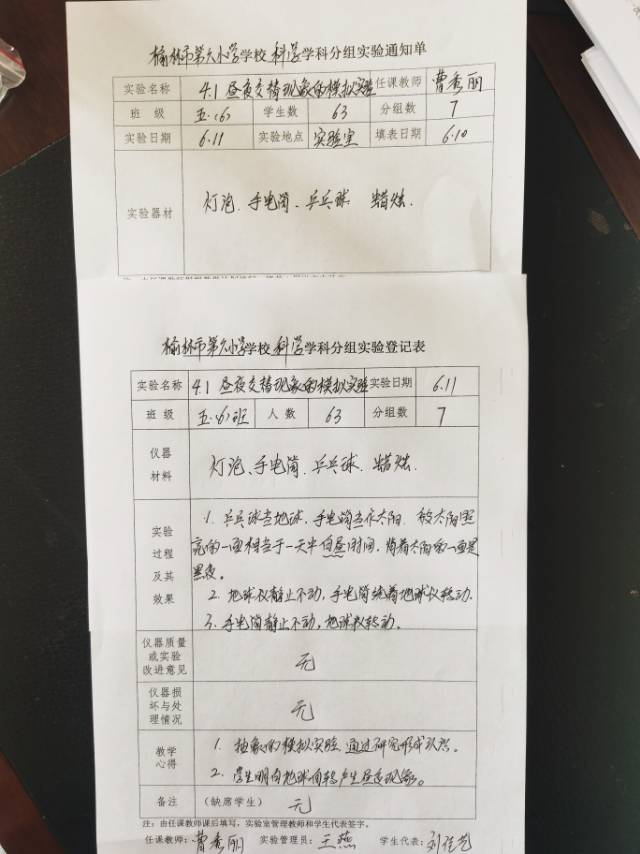 榆林市第六小学学校科学学科分组实验通知单
实验名称 4.1 昼夜交替现象的模拟实验 任课教师 曹秀丽
班 级 五.(6) 学生数 63 分组数 7
实验日期 6.11 实验地点 实验室 填表日期 6.10
实验器材 灯泡、手电筒、乒乓球 蜡烛.
榆林市第六小学学校科学学科分组实验登记表
实验名称 4.1 昼夜交替现象的模拟实验 实验日期 6.11
班 级 五.(6)班 人 数 63 分组数 7
仪器
材料
灯泡、手电筒、乒乓球、蜡烛.
实验
过程
及其
效果
1. 乒乓球当地球,手电筒当作太阳.被太阳照
亮的一面相当于一天中白昼时间,背着太阳的一面是
黑夜。
2. 地球仪静止不动,手电筒绕着地球仪转动.
3. 手电筒静止不动,地球仪转动。
仪器质量
或实验
改进意见
无
仪器损
坏与处
理情况
无
教学
心得
1. 抽象的模拟实验,通过研究形成认识。
2. 学生明白地球自转产生昼夜现象。
备注 (缺席学生) 无
注:由任课教师课后填写,实验室管理教师和学生代表签字。
任课教师:曹秀丽 实验管理员:王燕 学生代表:刘佳艺